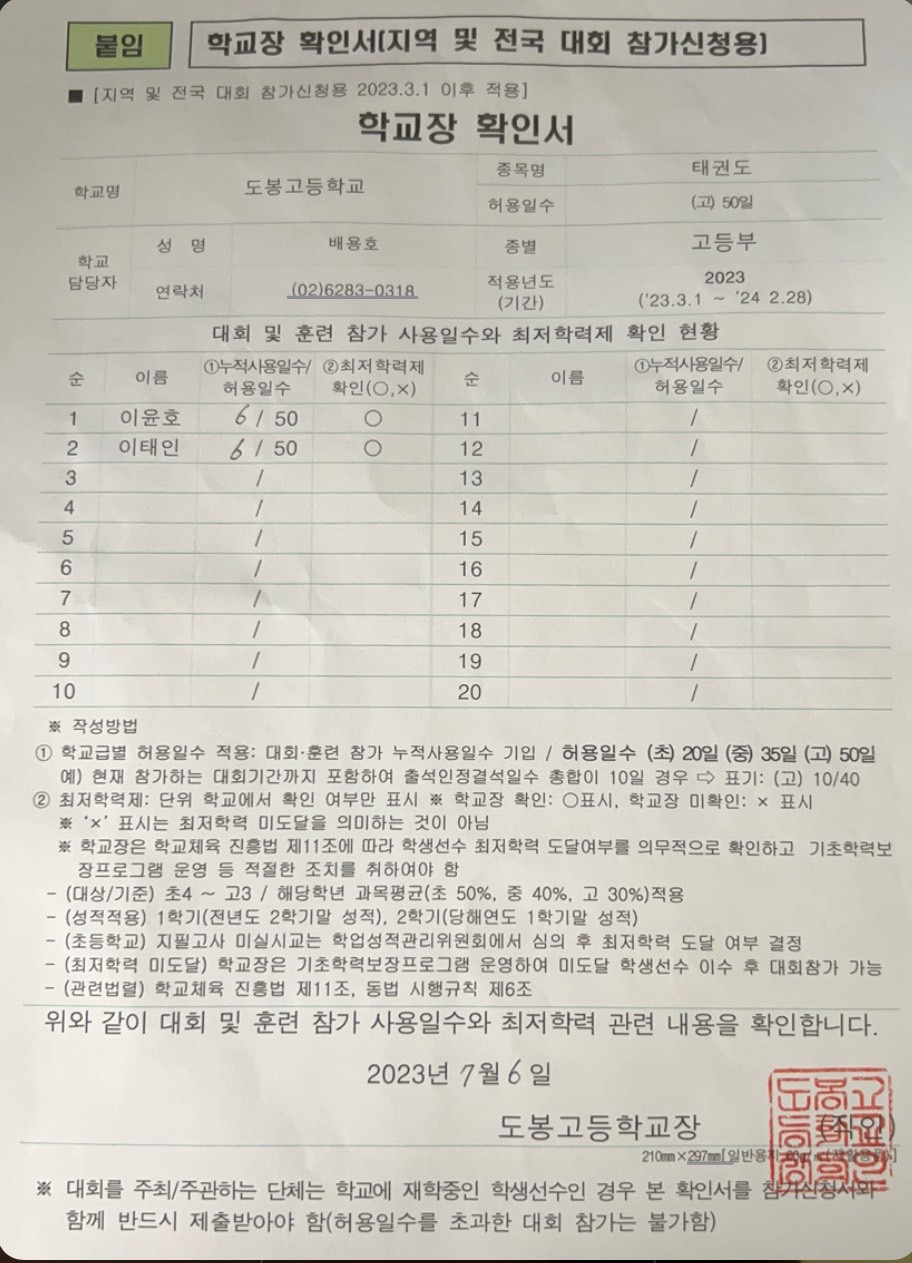 붙임
학교장 확인서(지역 및 전국 대회 참가신청용)
■ [지역 및 전국 대회 참가신청용 2023.3.1 이후 적용]
학교장 확인서
학교명 도봉고등학교 종목명 태권도
허용일수 (고) 50일
학교 담당자 성 명 배용호 종별 고등부
연락처 (02)6283-0318 적용년도 (기간) 2023 ('23.3.1 ~ '24 2.28)
대회 및 훈련 참가 사용일수와 최저학력제 확인 현황
순 이름 ①누적사용일수/허용일수 ②최저학력제 확인(○,×) 순 이름 ①누적사용일수/허용일수 ②최저학력제 확인(○,×)
1 이윤호 6 / 50 ○ 11 /
2 이태인 6 / 50 ○ 12 /
3 / 13 /
4 / 14 /
5 / 15 /
6 / 16 /
7 / 17 /
8 / 18 /
9 / 19 /
10 / 20 /
※ 작성방법
① 학교급별 허용일수 적용: 대회·훈련 참가 누적사용일수 기입 / 허용일수 (초) 20일 (중) 35일 (고) 50일
예) 현재 참가하는 대회기간까지 포함하여 출석인정결석일수 총합이 10일 경우 ⇨ 표기: (고) 10/40
② 최저학력제: 단위 학교에서 확인 여부만 표시 ※ 학교장 확인: ○표시, 학교장 미확인: × 표시
※ '×' 표시는 최저학력 미도달을 의미하는 것이 아님
※ 학교장은 학교체육 진흥법 제11조에 따라 학생선수 최저학력 도달여부를 의무적으로 확인하고 기초학력보
장프로그램 운영 등 적절한 조치를 취하여야 함
- (대상/기준) 초4 ~ 고3 / 해당학년 과목평균(초 50%, 중 40%, 고 30%)적용
- (성적적용) 1학기(전년도 2학기말 성적), 2학기(당해연도 1학기말 성적)
- (초등학교) 지필고사 미실시교는 학업성적관리위원회에서 심의 후 최저학력 도달 여부 결정
- (최저학력 미도달) 학교장은 기초학력보장프로그램 운영하여 미도달 학생선수 이수 후 대회참가 가능
- (관련법령) 학교체육 진흥법 제11조, 동법 시행규칙 제6조
위와 같이 대회 및 훈련 참가 사용일수와 최저학력 관련 내용을 확인합니다.
2023년 7월 6일
도봉고등학교장 (직인)
210㎜×297㎜[일반용지
※ 대회를 주최/주관하는 단체는 학교에 재학중인 학생선수인 경우 본 확인서를 참가신청서와
함께 반드시 제출받아야 함(허용일수를 초과한 대회 참가는 불가함)